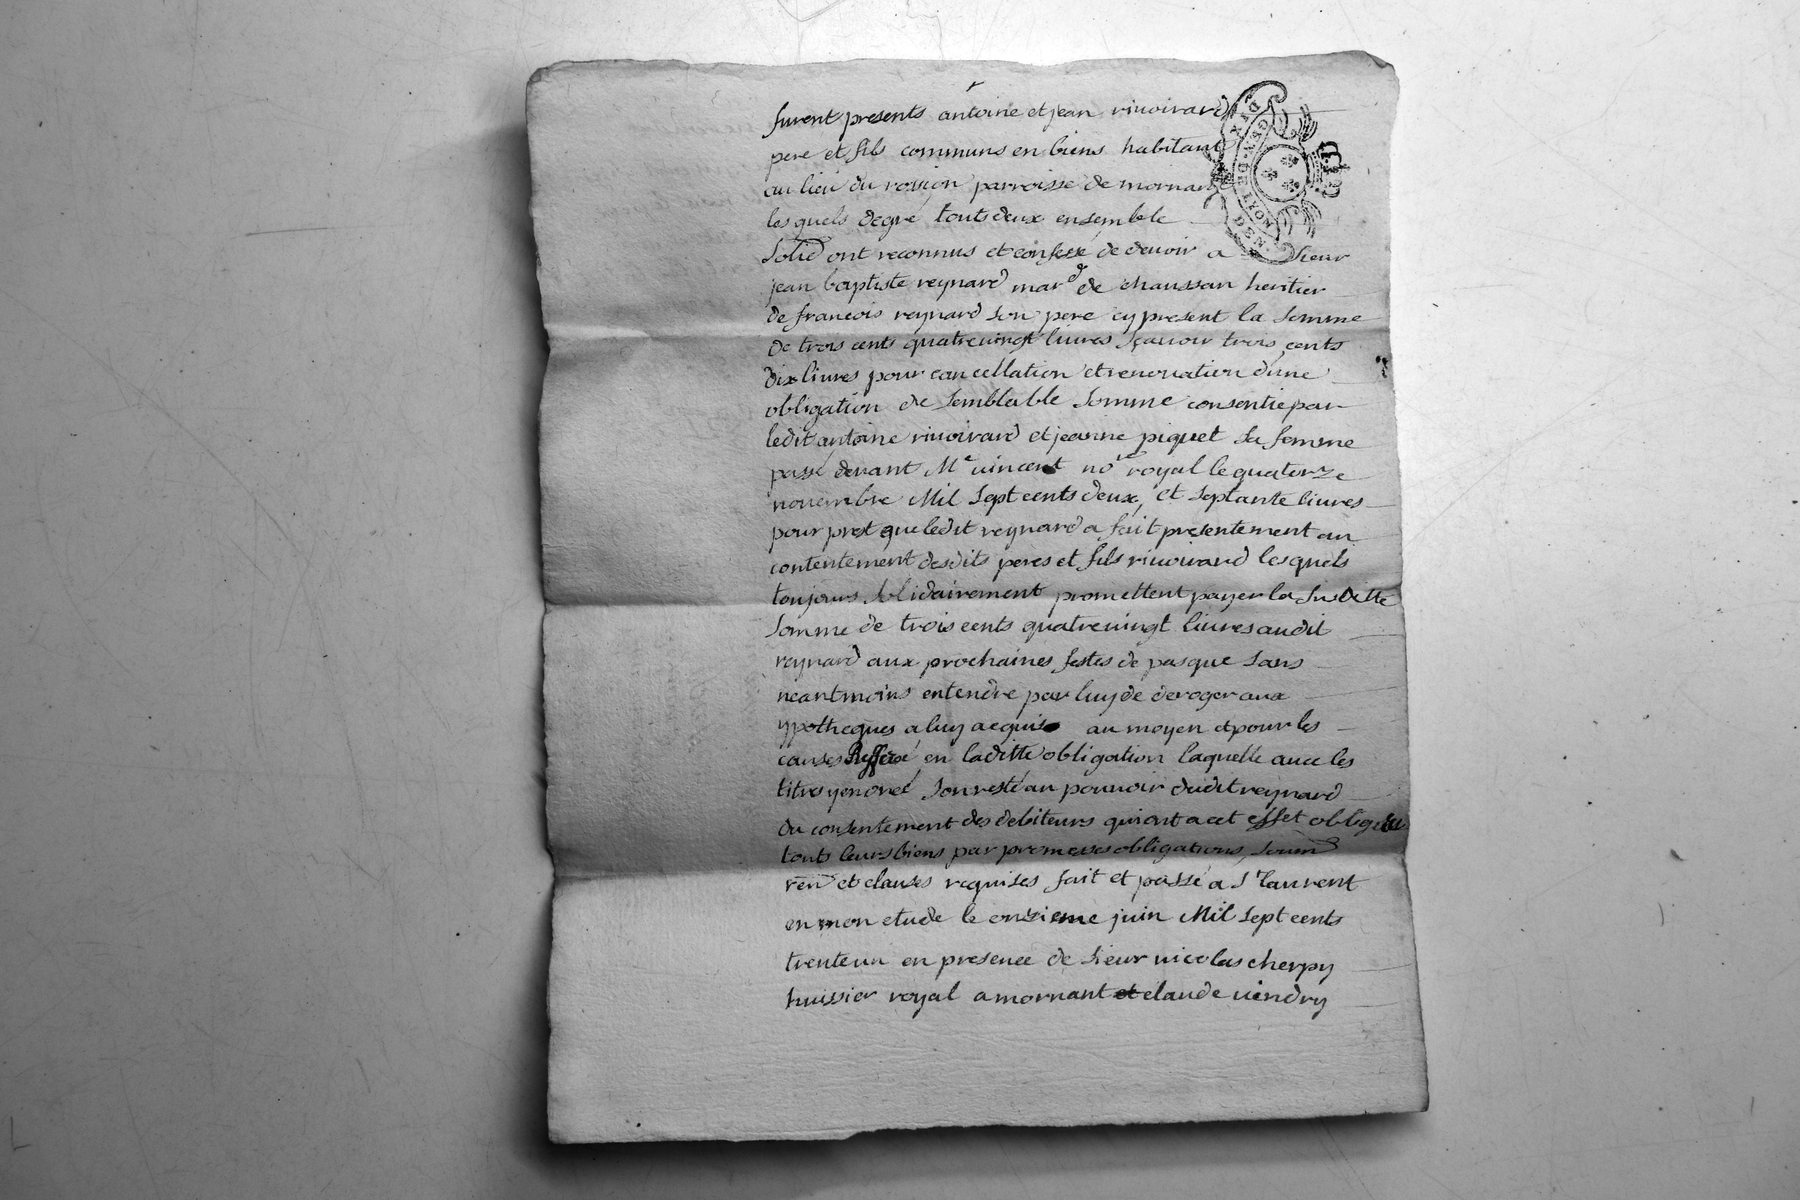 furent presents antoine et jean rivoirard
pere et fils communs en biens habitant
au lieu du rossion parroisse de mornant
lesquels degré touts deux ensemble
solid ont reconnus et confessé de devoir a sieur
jean baptiste reynard mar^d de chaussan heritier
de francois reynard son pere cy present la somme
de trois cents quatrevingt livres sçavoir trois cents
dix livres pour cancellation et renovation dune
obligation de semblable somme consentie par
ledit antoine rivoirard et jeanne piquet sa femme
passé devant M^e vincent no^re royal le quatorze
novembre Mil sept cents deux, et septante livres
pour prest que ledit reynard a fait presentement au
contentement desdits peres et fils rivoirard lesquels
toujours solidairement promettent payer la susditte
somme de trois cents quatrevingt livres audit
reynard aux prochaines festes de pasque sans
neantmoins entendre par luy de deroger aux
ypotheques a luy acquis au moyen et pour les
causes en laditte obligation laquelle avec les
titres yenoncé son resté au pouvoir dudit reynard
du consentement des debiteurs qui ont a cet effet obligé
touts leurs biens par promesses obligations, soum
ren et clauses requises fait et passé a S^t laurent
en mon etude le onzieme juin Mil sept cents
trenteun en presence de sieur nicolas cherpy
huissier royal a mornant et claude vindry
GEN · DE LYON
DEN ·